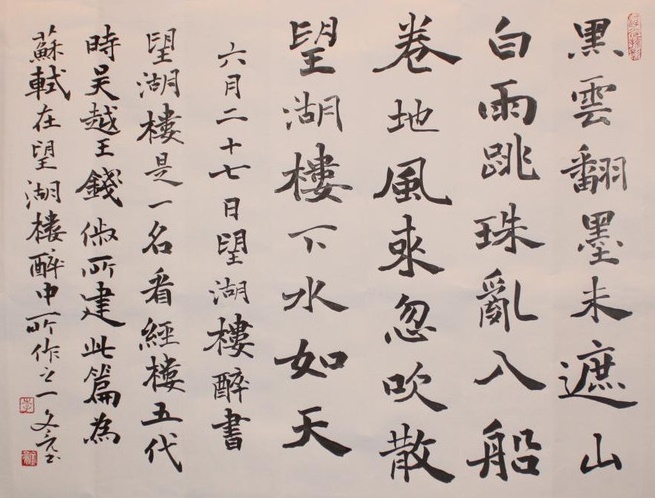 黑雲翻墨未遮山
白雨跳珠亂入船
卷地風來忽吹散
望湖樓下水如天
六月二十七日望湖樓醉書
望湖樓是一名看經樓五代
時吴越王錢俶所建此篇為
蘇軾在望湖樓醉中所作之一